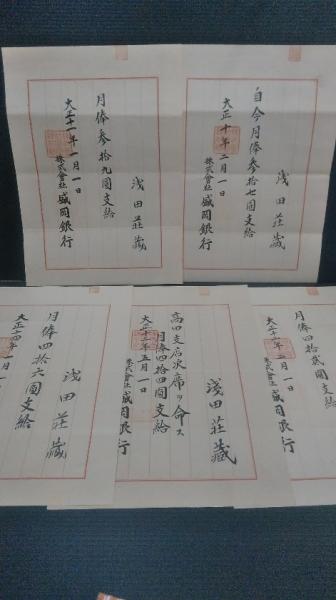 浅田荘蔵
自今月俸参拾七圓支給
大正十年二月一日
株式會社盛岡銀行
浅田荘蔵
月俸参拾九圓支給
大正十一年一月一日
株式會社盛岡銀行
月俸四拾貮圓支給
株式會社盛岡銀行
浅田荘蔵
高田支店次席ヲ命ス
月俸四拾四圓支給
大正十二年五月一日
株式會社盛岡銀行
浅田荘蔵
月俸四拾六圓支給
大正十四年